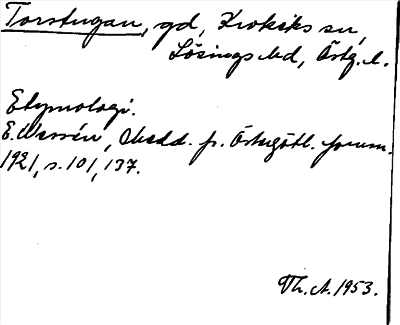 Torstugan, gd, Krokeks sn,
Lösings hd, Östg. l.
Etymologi.
E. Wessén, Medd. fr. Östergötl. fornm.
1921, s. 101, 137.
Th. A. 1953.